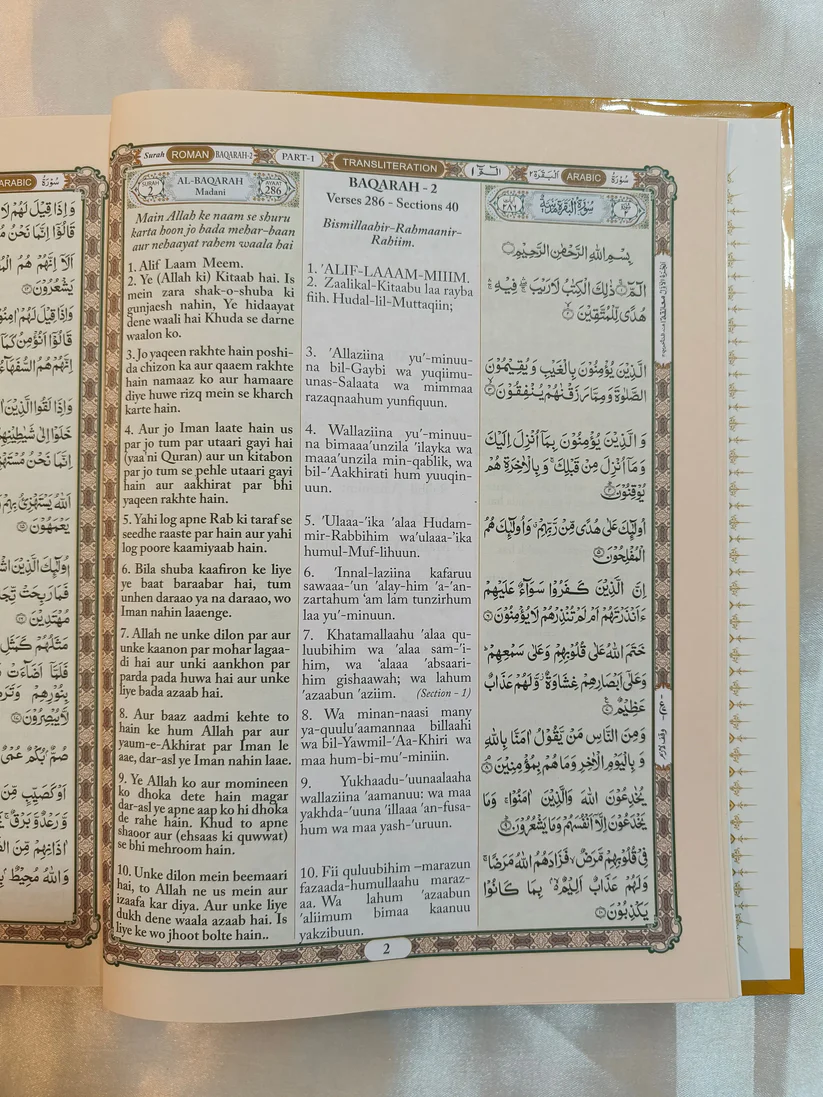 ARABIC سُوْرَةُ
وَاِذَا قِيْلَ لَهُمْ لَا
قَالُوْٓا اِنَّمَا نَحْنُ
اَلَآ اِنَّهُمْ هُمُ
يَشْعُرُوْنَ
وَاِذَا قِيْلَ لَهُمْ
قَالُوْٓا اَنُؤْمِنُ كَمَآ
اِنَّهُمْ هُمُ السُّفَهَآءُ
وَاِذَا لَقُوا الَّذِيْنَ
خَلَوْا اِلٰى شَيٰطِيْنِهِمْ
اِنَّمَا نَحْنُ
اَللّٰهُ يَسْتَهْزِئُ بِهِمْ
يَعْمَهُوْنَ
اُولٰٓئِكَ الَّذِيْنَ
فَمَا رَبِحَتْ
مُهْتَدِيْنَ
مَثَلُهُمْ كَمَثَلِ
فَلَمَّآ اَضَآءَتْ
بِنُوْرِهِمْ
لَّا يُبْصِرُوْنَ
صُمٌّۢ بُكْمٌ عُمْيٌ
اَوْ كَصَيِّبٍ مِّنَ
وَّرَعْدٌ وَّبَرْقٌ
اٰذَانِهِمْ مِّنَ
وَاللّٰهُ مُحِيْطٌۢ
Surah ROMAN BAQARAH-2 PART-1 TRANSLITERATION الٓمّٓ ١ اَلْبَقَرَة ٢ ARABIC سُوْرَةُ
SURAH 2 AL-BAQARAH Madani AYAAT 286
Main Allah ke naam se shuru
karta hoon jo bada mehar-baan
aur nehaayat rahem waala hai
1. Alif Laam Meem.
2. Ye (Allah ki) Kitaab hai. Is
mein zara shak-o-shuba ki
gunjaesh nahin, Ye hidaayat
dene waali hai Khuda se darne
waalon ko.
3. Jo yaqeen rakhte hain poshi-
da chizon ka aur qaaem rakhte
hain namaaz ko aur hamaare
diye huwe rizq mein se kharch
karte hain.
4. Aur jo Iman laate hain us
par jo tum par utaari gayi hai
(yaa'ni Quran) aur un kitabon
par jo tum se pehle utaari gayi
hain aur aakhirat par bhi
yaqeen rakhte hain.
5. Yahi log apne Rab ki taraf se
seedhe raaste par hain aur yahi
log poore kaamiyaab hain.
6. Bila shuba kaafiron ke liye
ye baat baraabar hai, tum
unhen daraao ya na daraao, wo
Iman nahin laaenge.
7. Allah ne unke dilon par aur
unke kaanon par mohar lagaa-
di hai aur unki aankhon par
parda pada huwa hai aur unke
liye bada azaab hai.
8. Aur baaz aadmi kehte to
hain ke hum Allah par aur
yaum-e-Akhirat par Iman le
aae, dar-asl ye Iman nahin laae.
9. Ye Allah ko aur momineen
ko dhoka dete hain magar
dar-asl ye apne aap ko hi dhoka
de rahe hain. Khud to apne
shaoor aur (ehsaas ki quwwat)
se bhi mehroom hain.
10. Unke dilon mein beemaari
hai, to Allah ne us mein aur
izaafa kar diya. Aur unke liye
dukh dene waala azaab hai. Is
liye ke wo jhoot bolte hain..
BAQARAH - 2
Verses 286 - Sections 40
Bismillaahir-Rahmaanir-
Rahiim.
1. 'ALIF-LAAAM-MIIIM.
2. Zaalikal-Kitaabu laa rayba
fiih. Hudal-lil-Muttaqiin;
3. 'Allaziina yu'-minuu-
na bil-Gaybi wa yuqiimu-
unas-Salaata wa mimmaa
razaqnaahum yunfiquun.
4. Wallaziina yu'-minuu-
na bimaaa'unzila 'ilayka wa
maaa'unzila min-qablik, wa
bil-'Aakhirati hum yuuqin-
uun.
5. 'Ulaaa-'ika 'alaa Hudam-
mir-Rabbihim wa'ulaaa-'ika
humul-Muf-lihuun.
6. 'Innal-laziina kafaruu
sawaaa-'un 'alay-him 'a-'an-
zartahum 'am lam tunzirhum
laa yu'-minuun.
7. Khatamallaahu 'alaa qu-
luubihim wa 'alaa sam-'i-
him, wa 'alaaa 'absaari-
him gishaawah; wa lahum
'azaabun 'aziim. (Section - 1)
8. Wa minan-naasi many
ya-quulu'aamannaa billaahi
wa bil-Yawmil-'Aa-Khiri wa
maa hum-bi-mu'-miniin.
9. Yukhaadu-'uunaalaaha
wallaziina 'aamanuu: wa maa
yakhda-'uuna 'illaaa 'an-fusa-
hum wa maa yash-'uruun.
10. Fii quluubihim –marazun
fazaada-humullaahu maraz-
aa. Wa lahum 'azaabun
'aliimum bimaa kaanuu
yakzibuun.
سُوْرَةُ الْبَقَرَةِ مَدَنِيَّةٌ
بِسْمِ اللّٰهِ الرَّحْمٰنِ الرَّحِيْمِ
الٓمّٓ ۚ ذٰلِكَ الْكِتٰبُ لَا رَيْبَ ۛ فِيْهِ ۛ
هُدًى لِّلْمُتَّقِيْنَ
الَّذِيْنَ يُؤْمِنُوْنَ بِالْغَيْبِ وَيُقِيْمُوْنَ
الصَّلٰوةَ وَمِمَّا رَزَقْنٰهُمْ يُنْفِقُوْنَ
وَ الَّذِيْنَ يُؤْمِنُوْنَ بِمَآ اُنْزِلَ اِلَيْكَ
وَمَآ اُنْزِلَ مِنْ قَبْلِكَ ۚ وَبِالْاٰخِرَةِ هُمْ
يُوْقِنُوْنَ
اُولٰٓئِكَ عَلٰى هُدًى مِّنْ رَّبِّهِمْ ۗ وَاُولٰٓئِكَ هُمُ
الْمُفْلِحُوْنَ
اِنَّ الَّذِيْنَ كَفَرُوْا سَوَآءٌ عَلَيْهِمْ
ءَاَنْذَرْتَهُمْ اَمْ لَمْ تُنْذِرْهُمْ لَا يُؤْمِنُوْنَ
خَتَمَ اللّٰهُ عَلٰى قُلُوْبِهِمْ وَعَلٰى سَمْعِهِمْ ۭ
وَعَلٰٓى اَبْصَارِهِمْ غِشَاوَةٌ ۡ وَّلَهُمْ عَذَابٌ
عَظِيْمٌ
وَمِنَ النَّاسِ مَنْ يَّقُوْلُ اٰمَنَّا بِاللّٰهِ
وَ بِالْيَوْمِ الْاٰخِرِ وَمَا هُمْ بِمُؤْمِنِيْنَ
يُخٰدِعُوْنَ اللّٰهَ وَالَّذِيْنَ اٰمَنُوْا ۚ وَمَا
يَخْدَعُوْنَ اِلَّآ اَنْفُسَهُمْ وَمَا يَشْعُرُوْنَ
فِيْ قُلُوْبِهِمْ مَّرَضٌ ۙ فَزَادَهُمُ اللّٰهُ مَرَضًا ۚ
وَلَهُمْ عَذَابٌ اَلِيْمٌۢ ۙ بِمَا كَانُوْا
يَكْذِبُوْنَ
2